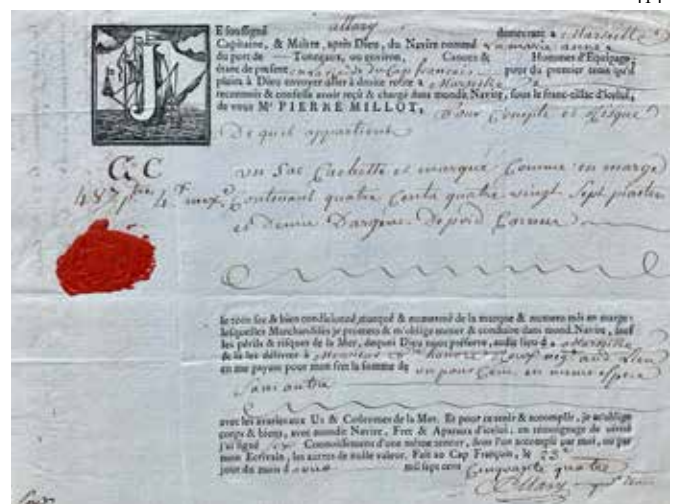 JE soussigné allary demeurant à Marseille
Capitaine, & Maitre, après Dieu, du Navire nommé la marie anne
du port de — Tonneaux, ou environ, Canons & Hommes d'Equipage,
étant de present en rade du Cap français pour du premier tems qu'il
plaira à Dieu envoyer aller à droite route à Marseille
reconnois & confesse avoir reçû & chargé dans mondit Navire, sous le franc-tillac d'icelui,
de vous Mr PIERRE MILLOT, Pour Compte et Risque
De qui il appartient
C C
un Sac Cachetté et marqué Comme en marge
487 Contenant quatre Cents quatre vingt Sept piastres
et demie D'argent
le tout sec & bien conditionné, marqué & numeroté de la marque & numero mis en marge:
lesquelles Marchandises je promets & m'oblige mener & conduire dans mond. Navire, sauf
les périls & risques de la Mer, desquels Dieu nous préserve, audit lieu d e Marseille
& là les délivrer à Monsieur honoré Roux
en me payant pour mon fret la somme de un pour Cent en même espèce
Sans autre
avec les avaries aux Us & Coûtumes de la Mer. Et pour ce tenir & accomplir, je m'oblige
corps & biens, avec mondit Navire, Fret & Aparaux d'icelui, en témoignage de vérité
j'ai signé Connoissemens d'une même teneur, dont l'un accompli par moi, ou par
mon Ecrivain, les autres de nulle valeur. Fait au Cap François, le 23e
jour du mois mil sept cent Cinquante quatre
Allary